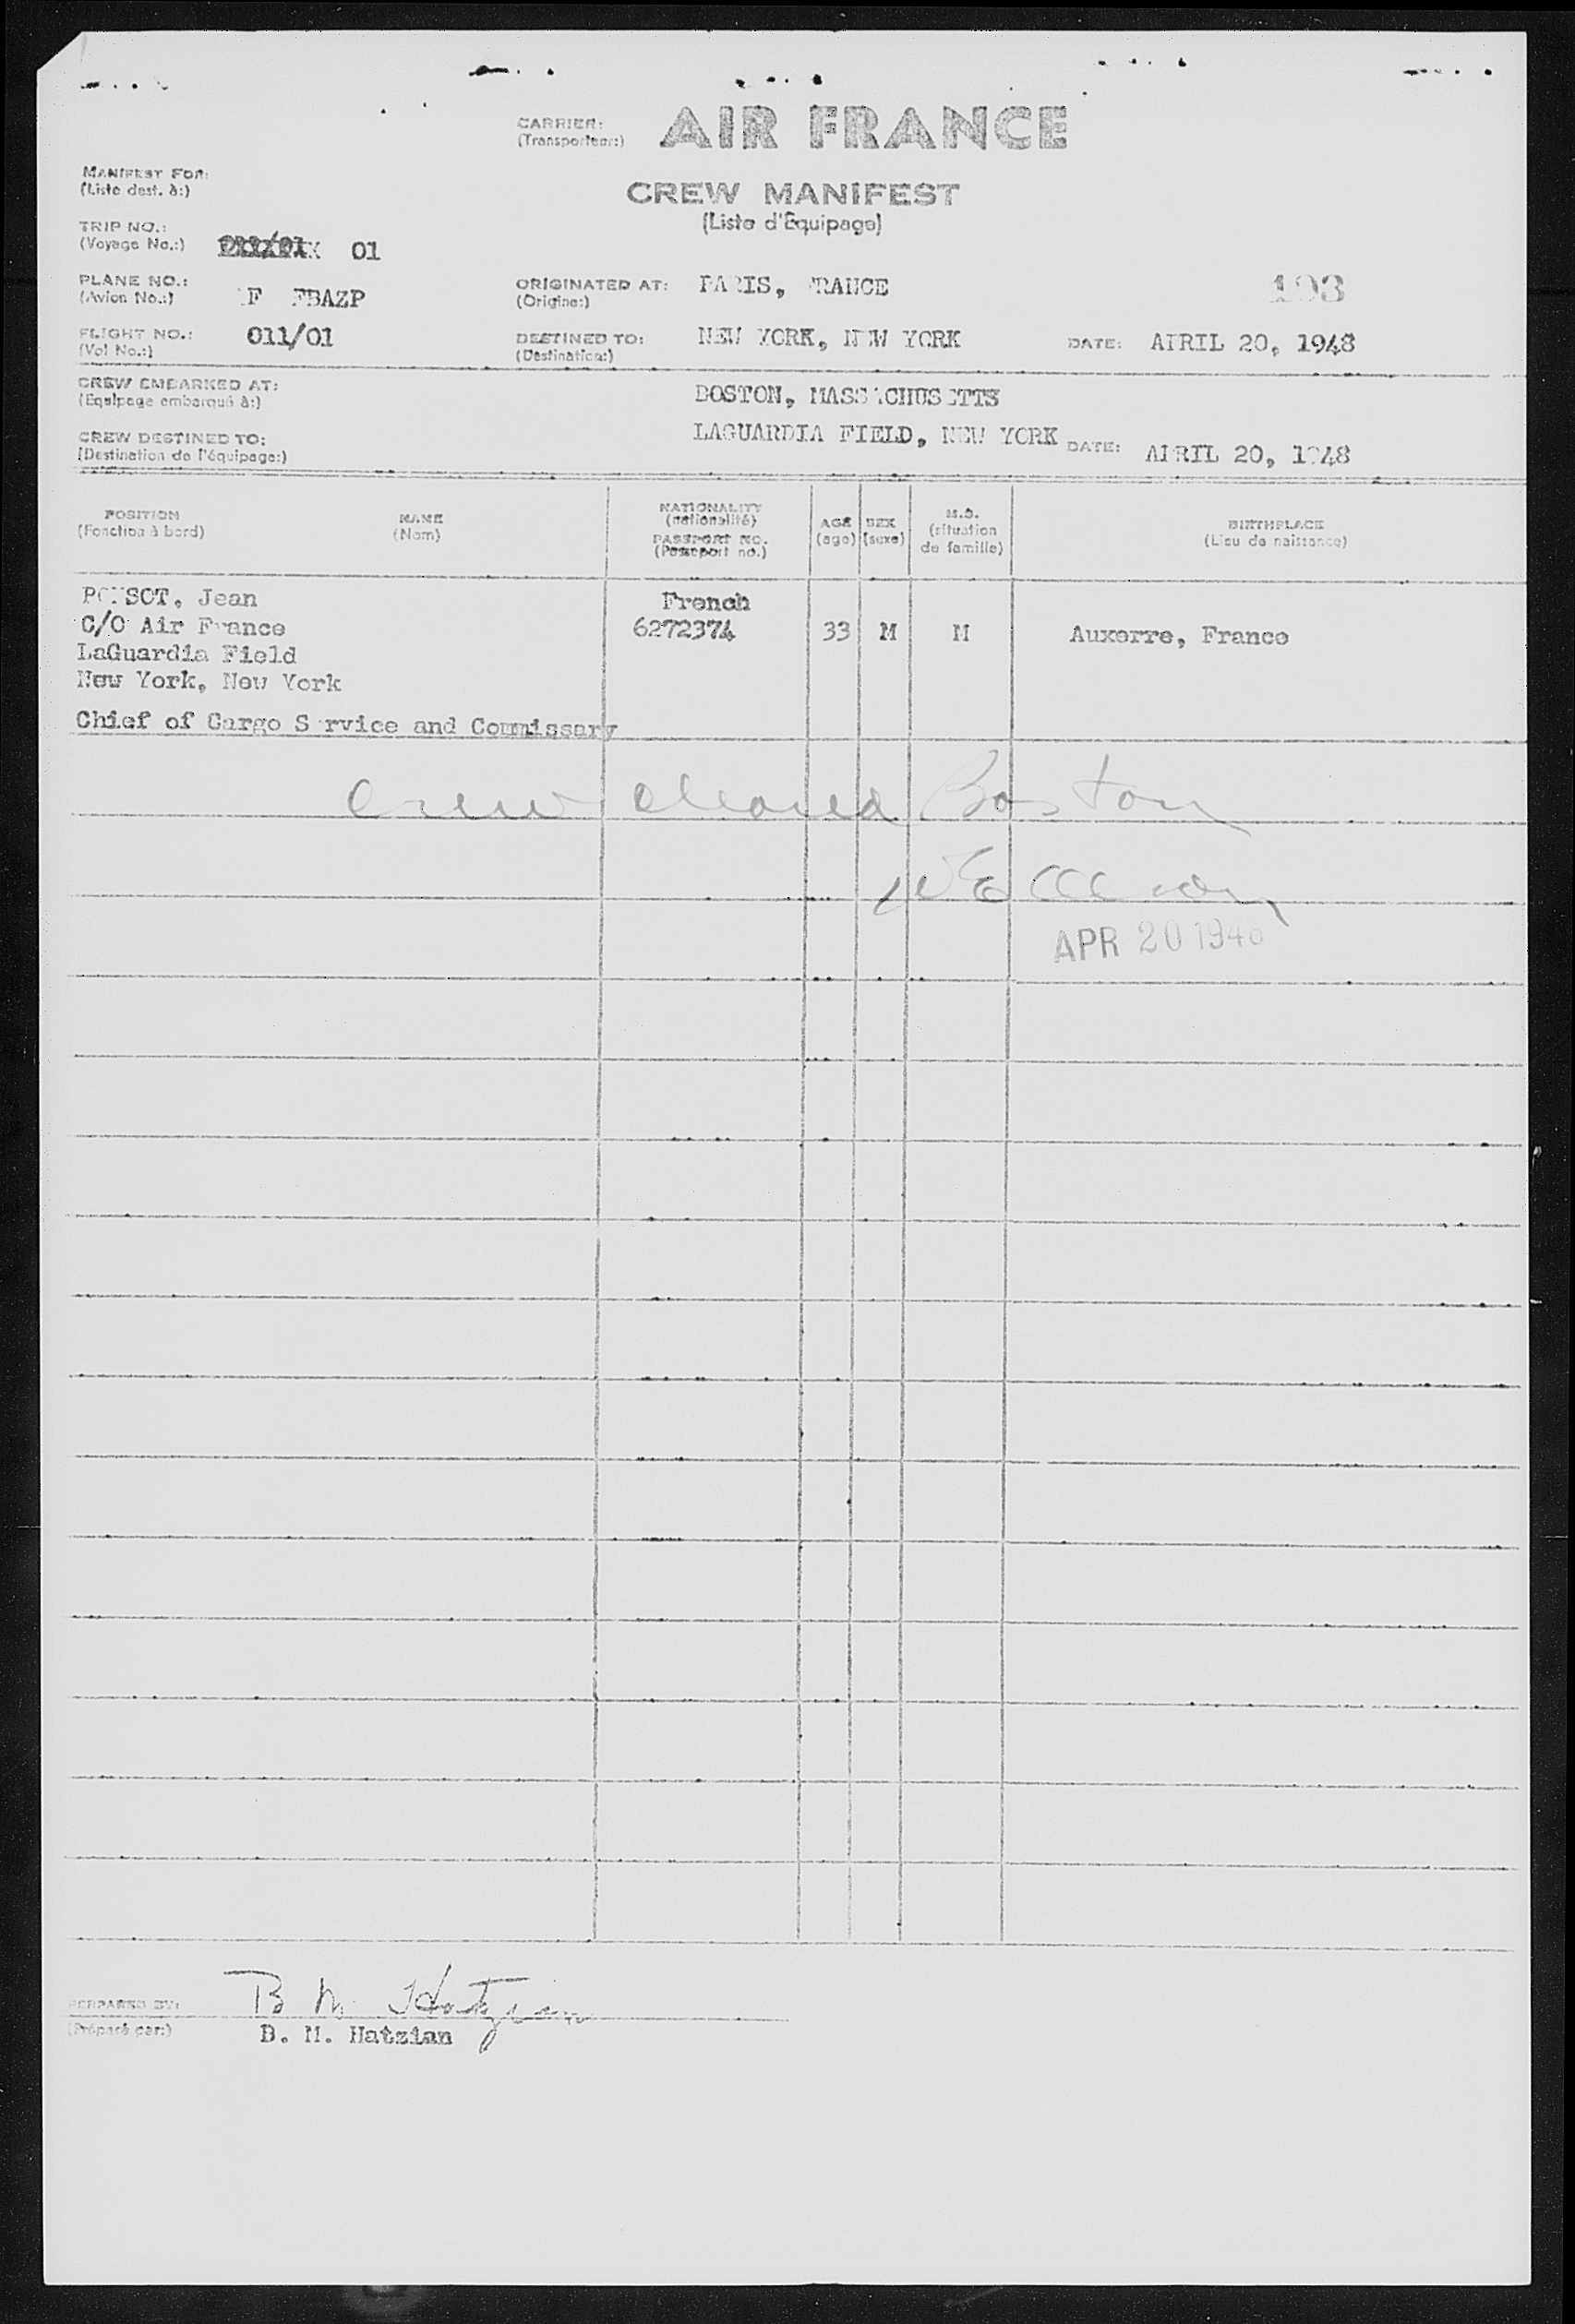 CARRIER: AIR FRANCE
(Transporteur:)
MANIFEST FOR:
(Liste dest. à:)
CREW MANIFEST
(Liste d'Equipage)
TRIP NO.:
(Voyage No.:) 01
PLANE NO.:
(Avion No.:) F FBAZP
ORIGINATED AT: PARIS, FRANCE
(Origine:)
193
FLIGHT NO.: 011/01
(Vol No.:)
DESTINED TO: NEW YORK, NEW YORK
(Destination:)
DATE: APRIL 20, 1948
CREW EMBARKED AT: BOSTON, MASSACHUSETTS
(Equipage embarqué à:)
CREW DESTINED TO: LAGUARDIA FIELD, NEW YORK
(Destination de l'équipage:)
DATE: APRIL 20, 1948
POSITION
(Fonction à bord)
NAME
(Nom)
NATIONALITY
(nationalité)
PASSPORT NO.
(Passeport no.)
AGE
(age)
SEX
(sexe)
M.S.
(situation
de famille)
BIRTHPLACE
(Lieu de naissance)
Jean French
C/O Air France 6272374 33 M M Auxerre, France
LaGuardia Field
New York, New York
Chief of Cargo Service and Commissary
Crew cleared Boston
APR 20 1948
PREPARED BY: B M Hatzian
(Préparé par:) B. M. Hatzian